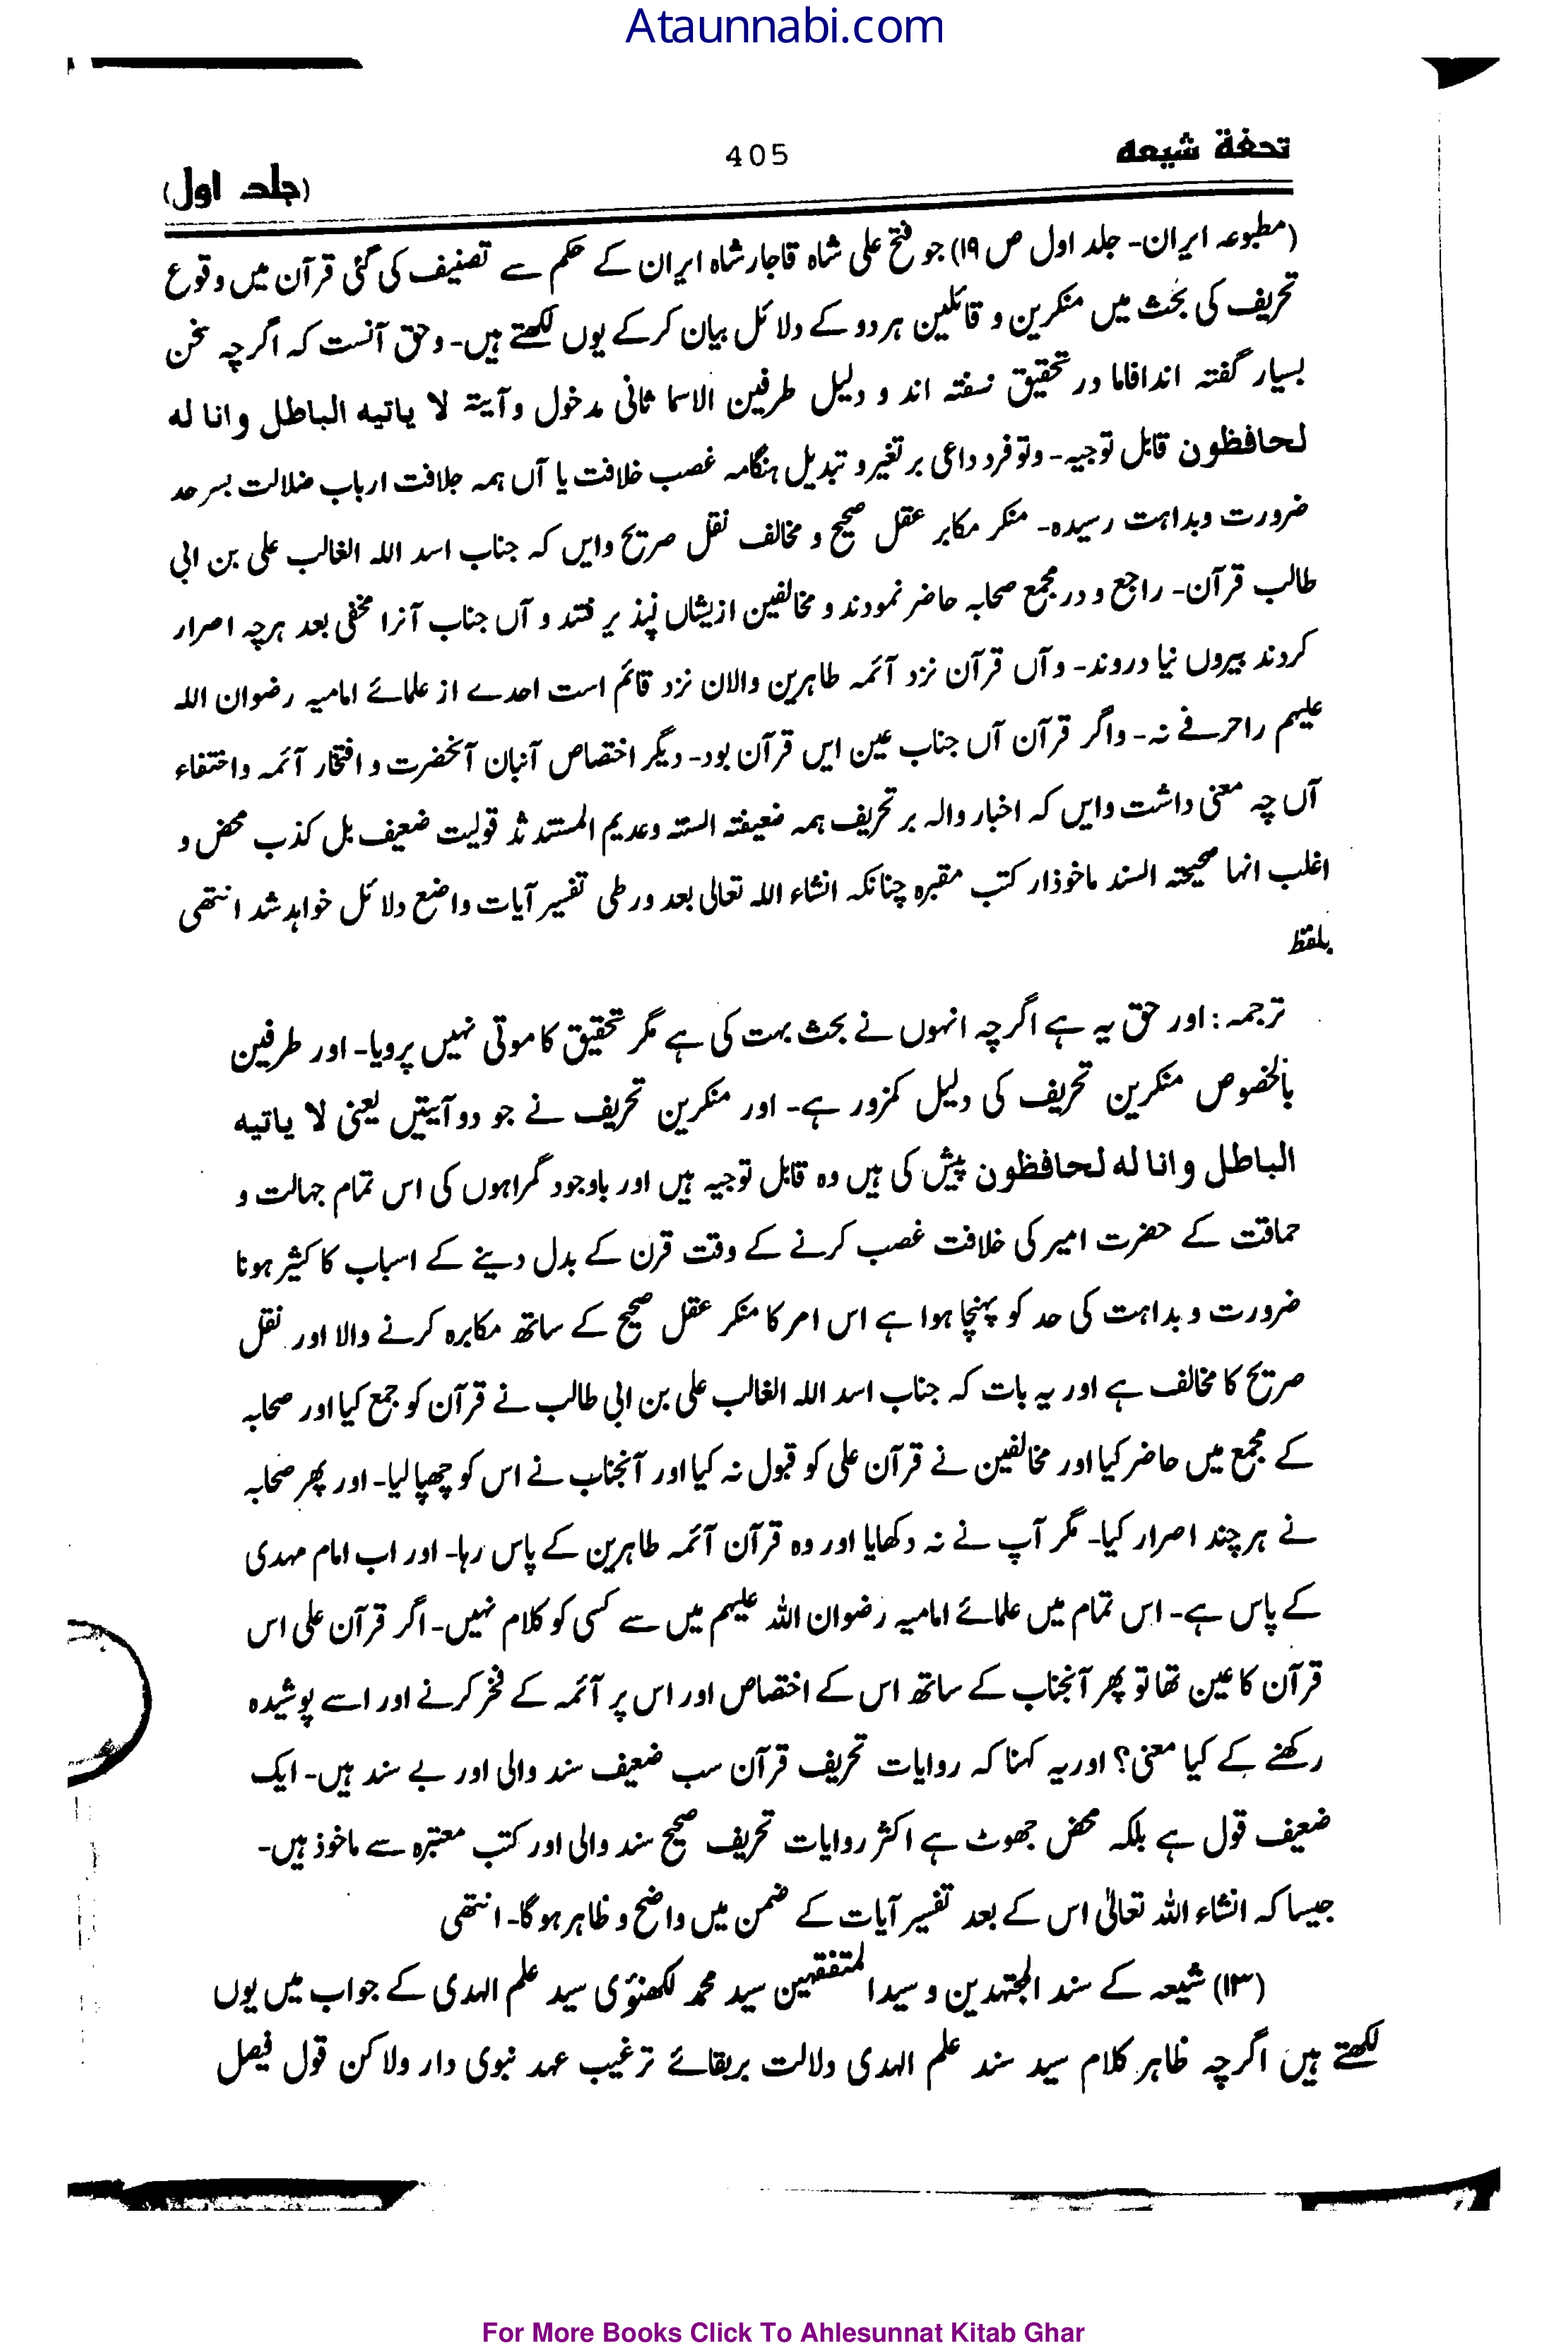 Ataunnabi.com
تحفۂ شیعہ
405
(جلد اول)
(مطبوعہ ایران۔ جلد اول ص ۱۹) جو فتح علی شاہ قاجار شاہ ایران کے حکم سے تصنیف کی گئی قرآن میں وقوع
تحریف کی بحث میں منکرین و قائلین ہر دو کے دلائل بیان کر کے یوں لکھتے ہیں۔ وحق آنست کہ اگرچہ سخن
بسیار گفتہ اندافاما در تحقیق نسفتہ اند و دلیل طرفین الاسما ثانی مدخول و آیتہ لا یاتیه الباطل وانا له
لحافظون قابل توجیہ۔ وتوفرد داعی بر تغیر و تبدیل ہنگامہ غصب خلافت یا آں ہمہ جلافت ارباب ضلالت بسر حد
ضرورت وبداہت رسیدہ۔ منکر مکابر عقل صحیح و مخالف نقل صریح وایں کہ جناب اسد اللہ الغالب علی بن ابی
طالب قرآن۔ راجع و در مجمع صحابہ حاضر نمودند و مخالفین ازیشاں پنذیر فتند و آں جناب آنرا مخفی بعد ہرچہ اصرار
کردند بیروں نیا دروند۔ وآں قرآن نزد آئمہ طاہرین والان نزد قائم است احدے از علمائے امامیہ رضوان اللہ
علیہم راحرفے نہ۔ واگر قرآن آں جناب عین ایں قرآن بود۔ دیگر اختصاص آنبان آنحضرت و افتخار آئمہ واختفاء
آں چہ معنی داشت وایں کہ اخبار والہ بر تحریف ہمہ ضعیفتہ الستہ وعدیم المستند ثد قولیت ضعیف بل کذب محض و
اغلب انہا صحیحتہ السند ماخوذار کتب مقبرہ چنانکہ انشاء اللہ تعالی بعد ورطی تفسیر آیات واضع دلائل خواہد شد انتھی
بلفظ
ترجمہ: اور حق یہ ہے اگرچہ انہوں نے بحث بہت کی ہے مگر تحقیق کا موتی نہیں پرویا۔ اور طرفین
بالخصوص منکرین تحریف کی دلیل کمزور ہے۔ اور منکرین تحریف نے جو دو آیتیں یعنی لا یاتیه
الباطل وانا له لحافظون پیش کی ہیں وہ قابل توجیہ ہیں اور باوجود گمراہوں کی اس تمام جہالت و
حماقت کے حضرت امیر کی خلافت غصب کرنے کے وقت قرن کے بدل دینے کے اسباب کا کثیر ہونا
ضرورت و بداہت کی حد کو پہنچا ہوا ہے اس امر کا منکر عقل صحیح کے ساتھ مکابرہ کرنے والا اور نقل
صریح کا مخالف ہے اور یہ بات کہ جناب اسد اللہ الغالب علی بن ابی طالب نے قرآن کو جمع کیا اور صحابہ
کے مجمع میں حاضر کیا اور مخالفین نے قرآن علی کو قبول نہ کیا اور آنجناب نے اس کو چھپا لیا۔ اور پھر صحابہ
نے ہر چند اصرار کیا۔ مگر آپ نے نہ دکھایا اور وہ قرآن آئمہ طاہرین کے پاس رہا۔ اور اب امام مہدی
کے پاس ہے۔ اس تمام میں علمائے امامیہ رضوان اللہ علیہم میں سے کسی کو کلام نہیں۔ اگر قرآن علی اس
قرآن کا عین تھا تو پھر آنجناب کے ساتھ اس کے اختصاص اور اس پر آئمہ کے فخر کرنے اور اسے پوشیدہ
رکھنے کے کیا معنی؟ اور یہ کہنا کہ روایات تحریف قرآن سب ضعیف سند والی اور بے سند ہیں۔ ایک
ضعیف قول ہے بلکہ محض جھوٹ ہے اکثر روایات تحریف صحیح سند والی اور کتب معتبرہ سے ماخوذ ہیں۔
جیسا کہ انشاء اللہ تعالیٰ اس کے بعد تفسیر آیات کے ضمن میں واضح و ظاہر ہو گا۔ انتھی
(۱۳) شیعہ کے سند المجتہدین و سید المتفقہین سید محمد لکھنؤی سید علم الہدی کے جواب میں یوں
لکھتے ہیں اگرچہ ظاہر کلام سید سند علم الہدی دلالت بربقائے ترغیب عہد نبوی دار ولاکن قول فیصل
For More Books Click To Ahlesunnat Kitab Ghar